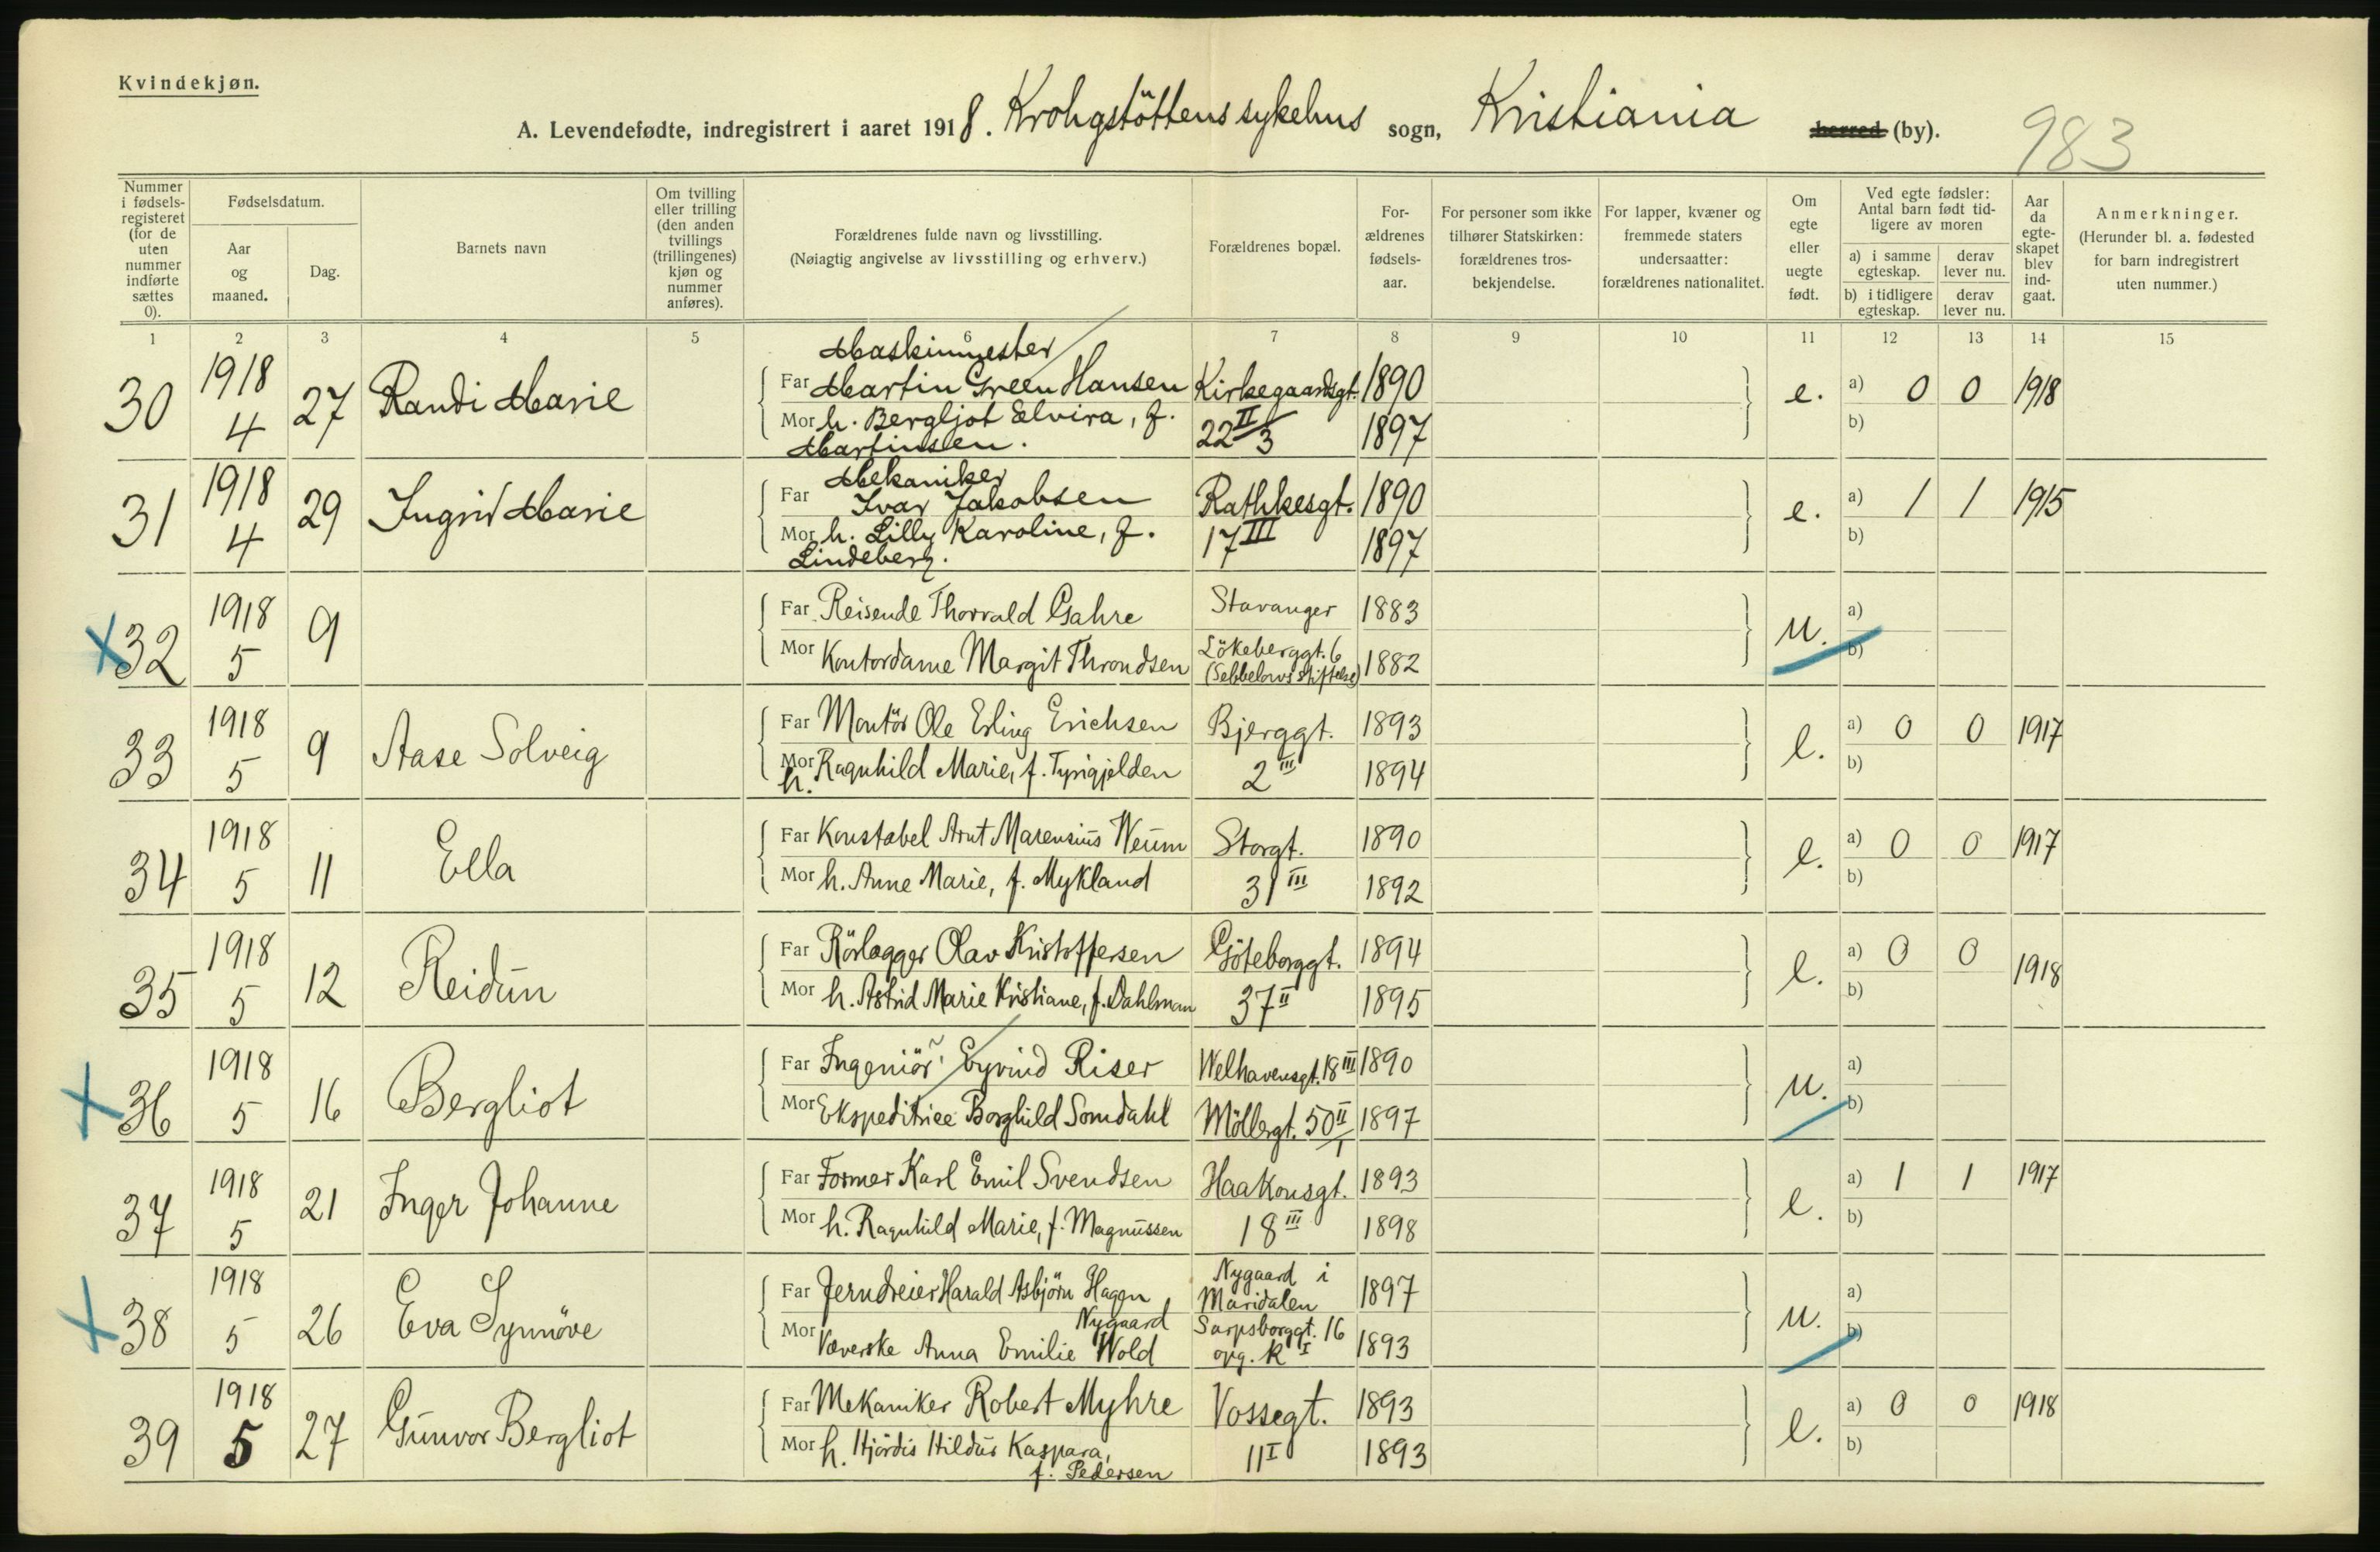 Kvindekjøn.
A. Levendefødte, indregistrert i aaret 1918. Krohgstöttens sykehus sogn, Kristiania herred (by). 983
Nummer i fødselsregisteret (for de uten nummer indførte sættes 0).
Fødselsdatum.
Aar og maaned.
Dag.
Barnets navn
Om tvilling eller trilling (den anden tvillings (trillingenes) kjøn og nummer anføres).
Forældrenes fulde navn og livsstilling.
(Nøiagtig angivelse av livsstilling og erhverv.)
Forældrenes bopæl.
Forældrenes fødselsaar.
For personer som ikke tilhører Statskirken: forældrenes trosbekjendelse.
For lapper, kvæner og fremmede staters undersaatter: forældrenes nationalitet.
Om egte eller uegte født.
Ved egte fødsler: Antal barn født tidligere av moren
a) i samme egteskap.
derav lever nu.
b) i tidligere egteskap.
derav lever nu.
Aar da egteskapet blev indgaat.
Anmerkninger.
(Herunder bl. a. fødested for barn indregistrert uten nummer.)
1 2 3 4 5 6 7 8 9 10 11 12 13 14 15
30 1918 4 27 Randi Marie
Maskinmester
Far Martin Green Hansen Kirkegaardsgt. 1890
Mor h. Bergljot Elvira, f. 22 II/3 1897
Martinsen.
e. a) 0 0 1918
b)
31 1918 4 29 Ingrid Marie
Mekaniker
Far Ivar Jakobsen Rathkesgt. 1890
Mor h. Lilly Karoline, f. 17 III 1897
Lindeberg.
e. a) 1 1 1915
b)
32 1918 5 9
Far Reisende Thorvald Gahre Stavanger 1883
Mor Kontordame Margit Throndsen Lökeberggt. 6 (Sebbelows stiftelse) 1882
u. a)
b)
33 1918 5 9 Aase Solveig
Far Montör Ole Erling Erichsen Bjerggt. 1893
Mor h. Ragnhild Marie, f. Tyrigjelden 2 III 1894
e. a) 0 0 1917
b)
34 1918 5 11 Ella
Far Konstabel Arnt Marensius Weum Storgt. 1890
Mor h. Anne Marie, f. Mykland 31 III 1892
e. a) 0 0 1917
b)
35 1918 5 12 Reidun
Far Rörlægger Olav Kristoffersen Göteborggt. 1894
Mor h. Astrid Marie Kristiane, f. Dahlman 37 II 1895
e. a) 0 0 1918
b)
36 1918 5 16 Bergliot
Far Ingeniör Eyvind Riser Welhavensgt. 18 III 1890
Mor Ekspeditrice Borghild Somdahl Möllergt. 50 II 1897
u. a)
b)
37 1918 5 21 Inger Johanne
Far Former Karl Emil Svendsen Haakonsgt. 1893
Mor h. Ragnhild Marie, f. Magnussen 18 III 1898
e. a) 1 1 1917
b)
38 1918 5 26 Eva Synnöve
Far Jerndreier Harald Asbjörn Hagen Nygaard Nygaard i Maridalen 1897
Mor Væverske Anna Emilie Wold Sarpsborggt. 16 opg. K I 1893
u. a)
b)
39 1918 5 27 Gunvor Bergliot
Far Mekaniker Robert Myhre Vossegt. 1893
Mor h. Hjördis Hildur Kaspara, 11 I 1893
f. Pedersen
e. a) 0 0 1918
b)